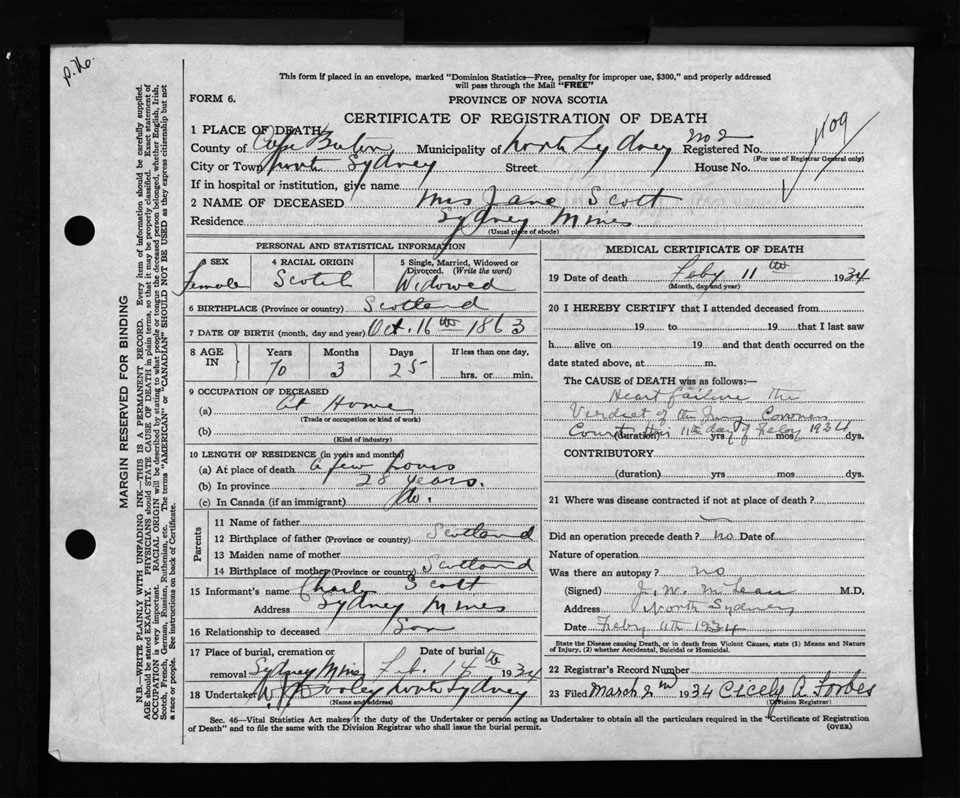 P.H.
This form if placed in an envelope, marked "Dominion Statistics—Free, penalty for improper use, $300," and properly addressed
will pass through the Mail "FREE"
FORM 6.
PROVINCE OF NOVA SCOTIA
CERTIFICATE OF REGISTRATION OF DEATH
1 PLACE OF DEATH
County of Cape Breton Municipality of North Sydney No 2 Registered No. 1109
(For use of Registrar General only)
City or Town North Sydney Street House No.
If in hospital or institution, give name
2 NAME OF DECEASED Mrs Jane Scott
Residence Sydney Mines
(Usual place of abode)
PERSONAL AND STATISTICAL INFORMATION
3 SEX 4 RACIAL ORIGIN 5 Single, Married, Widowed or
Divorced. (Write the word)
Female Scotch Widowed
6 BIRTHPLACE (Province or country) Scotland
7 DATE OF BIRTH (month, day and year) Oct. 16th 1863
8 AGE IN Years Months Days If less than one day,
70 3 25 hrs. or min.
9 OCCUPATION OF DECEASED
(a) At Home
(Trade or occupation or kind of work)
(b)
(Kind of industry)
10 LENGTH OF RESIDENCE (in years and months)
(a) At place of death a few hours
(b) In province 28 years.
(c) In Canada (if an immigrant) do.
Parents
11 Name of father
12 Birthplace of father (Province or country) Scotland
13 Maiden name of mother
14 Birthplace of mother (Province or country) Scotland
15 Informant's name Charles Scott
Address Sydney Mines
16 Relationship to deceased Son
17 Place of burial, cremation or Date of burial
removal Sydney Mines Feb. 14th 1934
18 Undertaker North Sydney
(Name and address)
MEDICAL CERTIFICATE OF DEATH
19 Date of death Feby 11th 1934
(Month, day and year)
20 I HEREBY CERTIFY that I attended deceased from
19 to 19 that I last saw
h alive on 19 and that death occurred on the
date stated above, at m.
The CAUSE OF DEATH was as follows:—
Heart failure the
Verdict of the Jury Coroners
Court this 11th day of Feby 1934
(duration) yrs. mos. dys.
CONTRIBUTORY
(duration) yrs. mos. dys.
21 Where was disease contracted if not at place of death?
Did an operation precede death? no Date of
Nature of operation
Was there an autopsy? no
(Signed) J. W. McLean M.D.
Address North Sydney
Date Feby 11th 1934
State the Disease causing Death, or in death from Violent Causes, state (1) Means and Nature
of Injury, (2) whether Accidental, Suicidal or Homicidal.
22 Registrar's Record Number
23 Filed March 2nd 1934 Cicely A. Forbes
(Division Registrar)
Sec. 46—Vital Statistics Act makes it the duty of the Undertaker or person acting as Undertaker to obtain all the particulars required in the "Certificate of Registration
of Death" and to file the same with the Division Registrar who shall issue the burial permit.
(OVER)
MARGIN RESERVED FOR BINDING
N.B.—WRITE PLAINLY WITH UNFADING INK—THIS IS A PERMANENT RECORD. Every item of information should be carefully supplied.
AGE should be stated EXACTLY. PHYSICIANS should STATE CAUSE OF DEATH in plain terms, so that it may be properly classified. Exact statement of
OCCUPATION is very important. RACIAL ORIGIN will be described by stating to what people or tongue the deceased person belonged, whether English, Irish,
Scotch, French, German, Russian, Ruthenian, etc. The terms "AMERICAN" or "CANADIAN" SHOULD NOT BE USED as they express citizenship but not
a race or people. See instructions on back of Certificate.